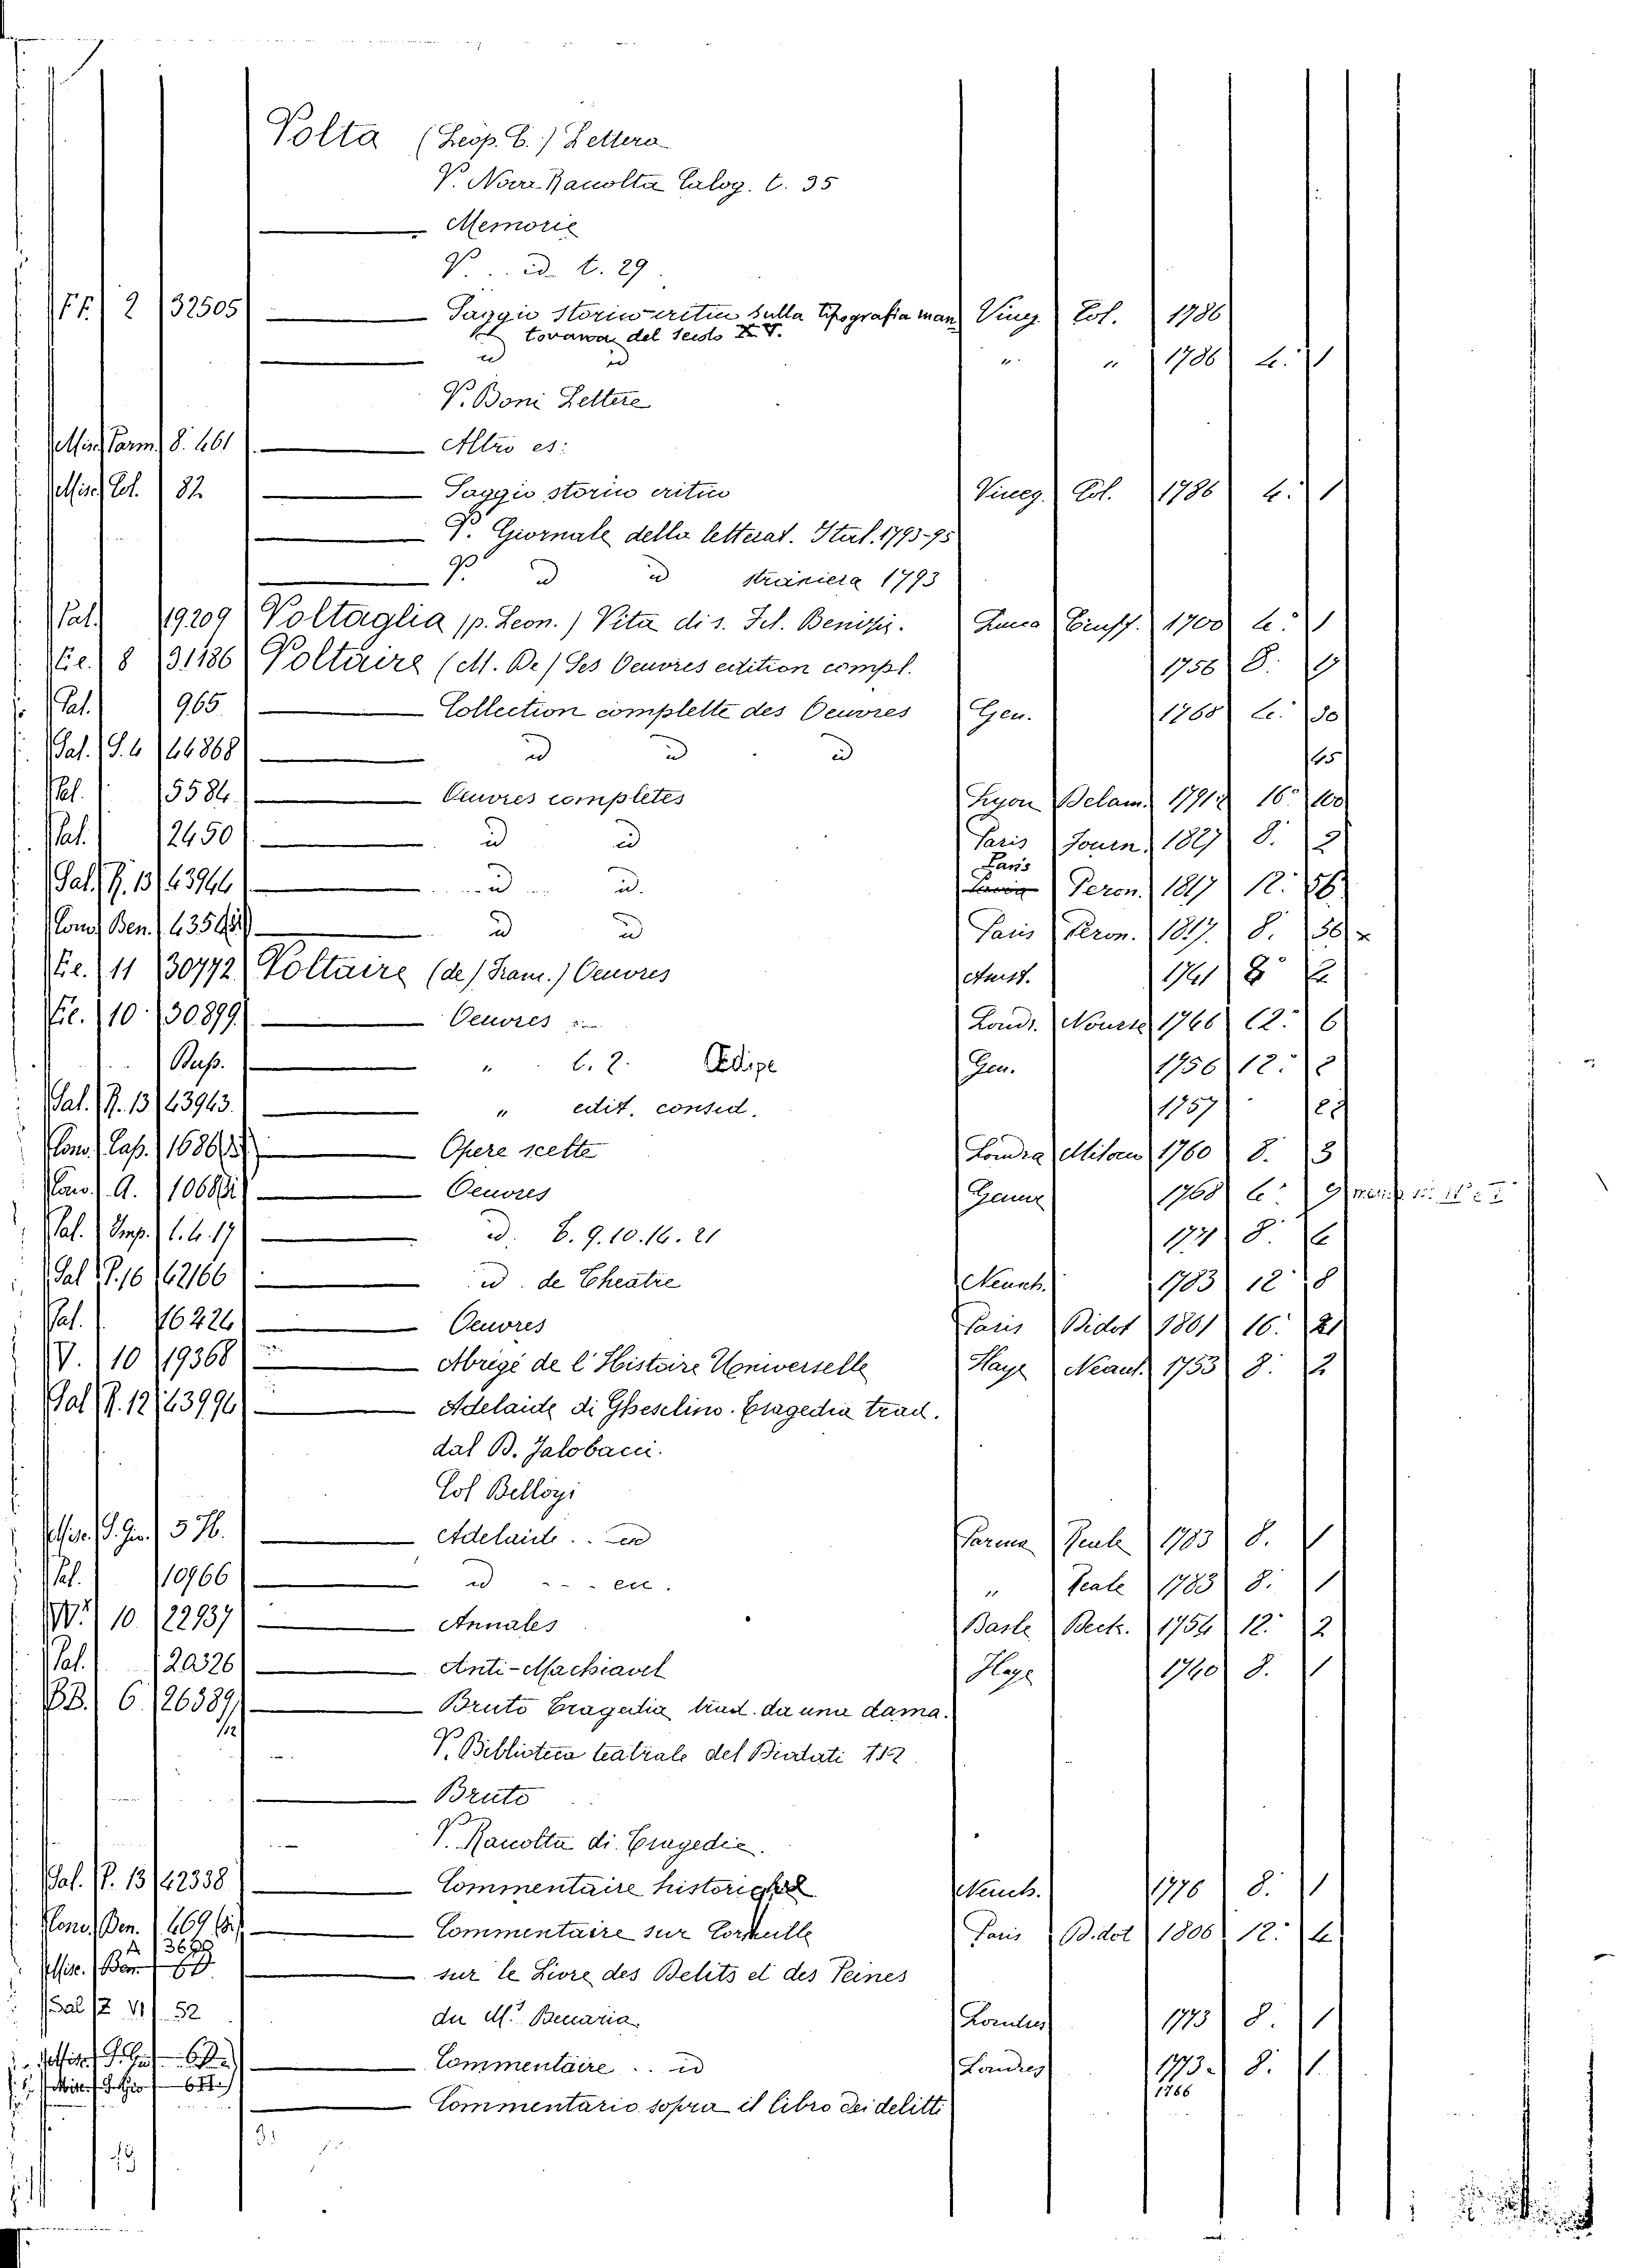 Volta (Leop. C.) Lettera
V. Nova Raccolta Calog. t. 35
Memorie
V. id. t. 29.
FF. 2 32505 Saggio storico critico sulla tipografia man Vineg. Col. 1786
tovana del secolo XV.
id id " " 1786 4. 1
V. Boni Lettere
Misc. Parm. 8. 461 Altro es:
Misc. Col. 82 Saggio storico critico Vineg. Col. 1786 4. 1
V. Giornale della letterat. Ital. 1793-95
V. id id straniera 1793
Pal. 19209 Voltaglia (p. Leon.) Vita di s. Fil. Benizii. Lucca 1700 4. 1
8 31186 Voltaire (M. De) Ses Oeuvres edition compl. 1756 8.
Pal. 965 Collection complette des Oeuvres Gen. 1768 4. 30
Pal. S. 4 44868 id id id 45
Pal. 5584 Oeuvres completes Lyon Delam. 1791 16. 100
Pal. 12450 id id Paris Tourn. 1827 8. 2
Paris
Pal. P. 13 43944 id id. Peron. 1817 12. 56
Cono. Ben. id id Paris Peron. 1817. 8. 56
11 30772 Voltaire (de) Franc.) Oeuvres Amst. 1741 8
10 30899 Oeuvres Lond. Nourse 1746 12. 6
Bass. " t. 2. Œdipe Gen. 1756 12. 2
Pal. P. 13 43943. " edit. consid. 1757
Cono. Cap. Opere scelte Londra Milocco 1760 8. 3
Cono. A. Oeuvres Geneve 1768 4.
Pal. Imp. l. 4. 17 id. t. 9. 10. 16. 21 1771 8. 4
Pal P. 16 42166 id. de Theatre Neuch. 1783 12 8
Pal. 16224 Oeuvres Paris Didot 1801 16. 21
V. 10 19368 Abrégé de l'Histoire Universelle Haye Neaul. 1753 8. 2
Pal P. 12 43994 Adelaide di Gheselino. Tragedia trad.
dal B. Jalobacci.
Col Belloyi
Misc. P. Gio. 576. Adelaide .. en Parma Reale 1783 8. 1
Pal. 10966 id - - - en. " Reale 1783 8. 1
W. 10 22937 Annales Basle Deck. 1754 12. 2
Pal. 20326 Anti-Machiavel Haye 1740 8. 1
BB. 6 26589 Bruto Tragedia trad. da una dama.
12
V. Biblioteca teatrale del Diodati t12
Bruto
V. Raccolta di Tragedie.
Pal. P. 13 42338 Commentaire historique Neuch. 1776 8. 1
Cono. Ben. Commentaire sur Corneille Paris Didot 1806 12. 4
Misc. Ben sur le Livre des Delits et des Peines
Pal Z VI 52 du M. Beccaria Londres 1773 8. 1
Commentaire .. id Londres 1773. 8. 1.
1766
Commentario sopra il libro dei delitti